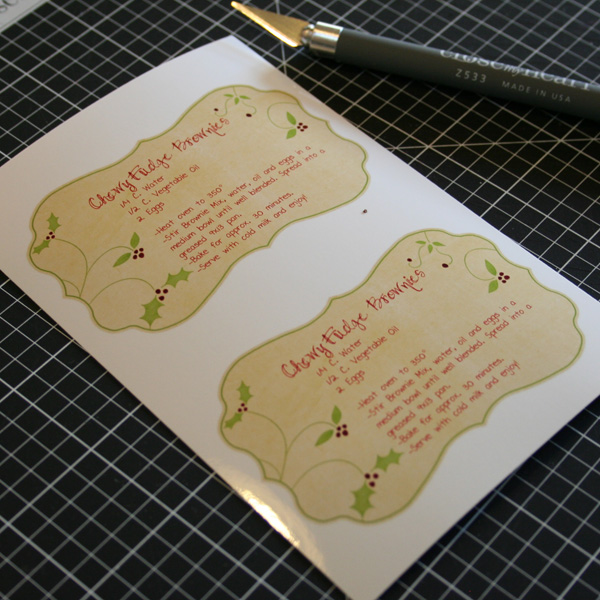 Z533 MADE IN USA
Cherry Fudge Brownies
1/4 C. Water
1/2 C. Vegetable Oil
2 Eggs
-Heat oven to 350°
-Stir Brownie Mix, water, oil and eggs in a
medium bowl until well blended. Spread into a
greased 9x13 pan.
-Bake for approx. 30 minutes.
-Serve with cold milk and enjoy!
Cherry Fudge Brownies
1/4 C. Water
1/2 C. Vegetable Oil
2 Eggs
-Heat oven to 350°
-Stir Brownie Mix, water, oil and eggs in a
medium bowl until well blended. Spread into a
greased 9x13 pan.
-Bake for approx. 30 minutes.
-Serve with cold milk and enjoy!